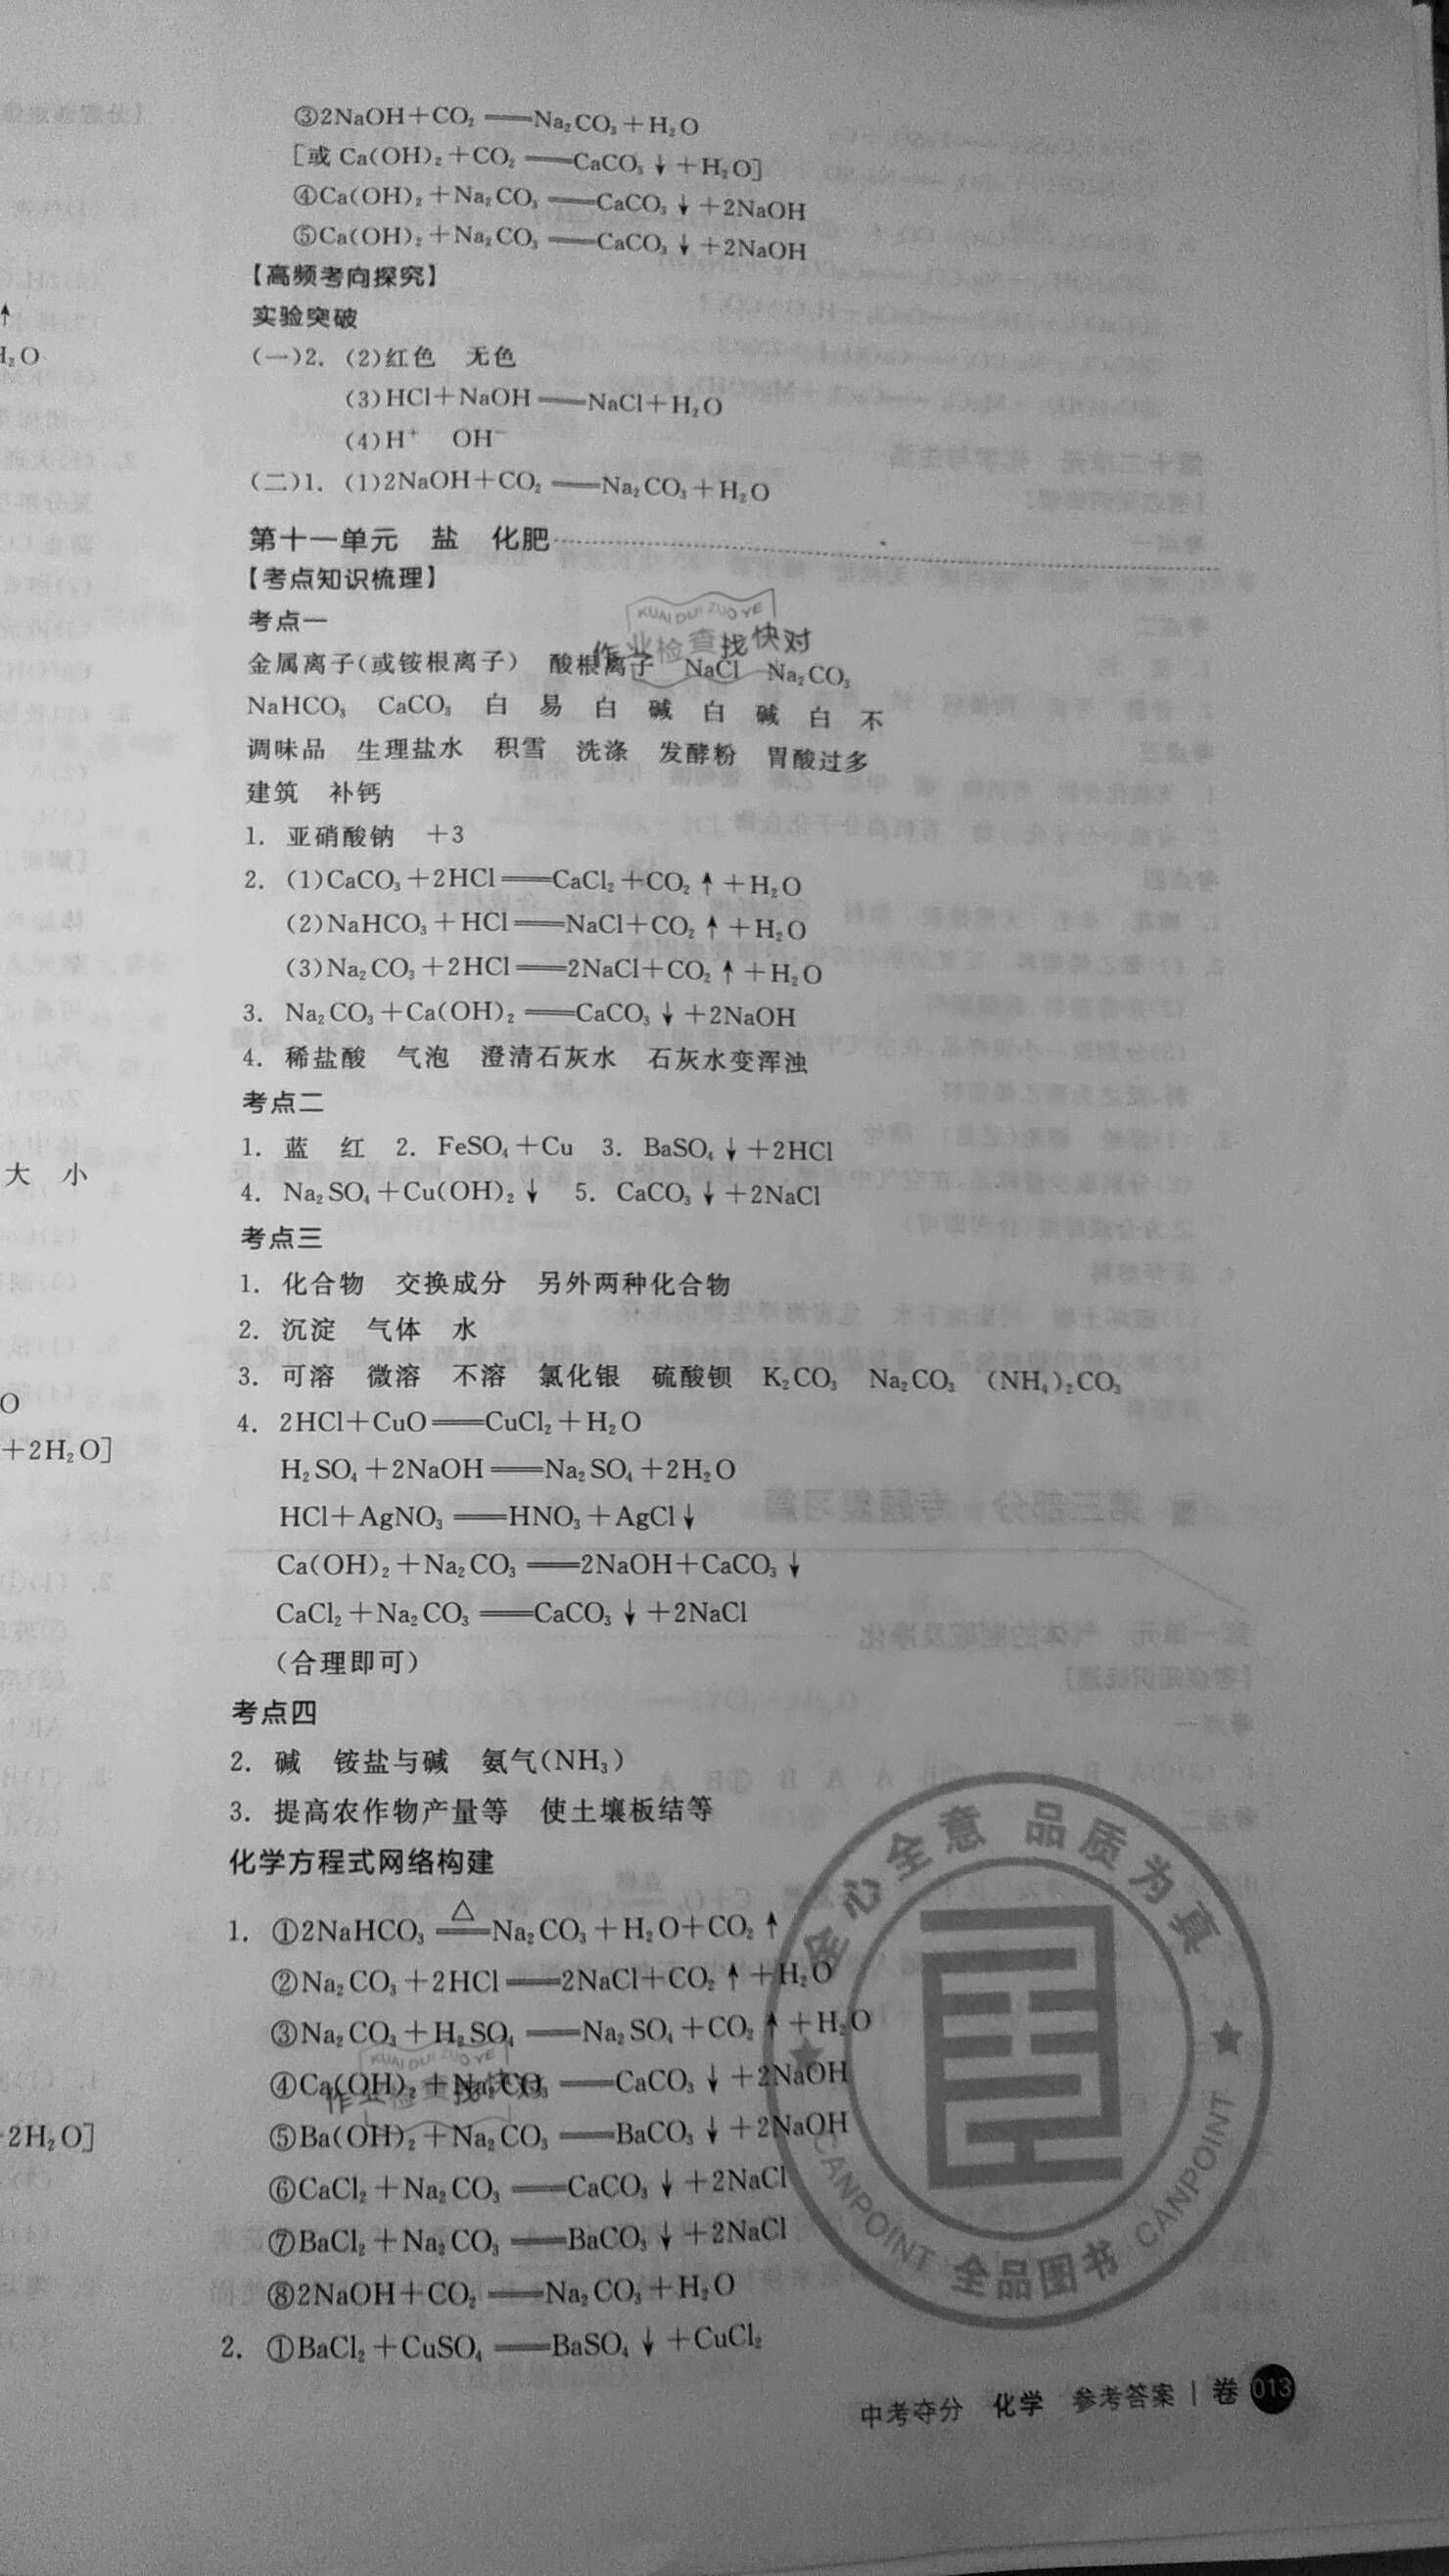 ③2NaOH+CO₂══Na₂CO₃+H₂O
[或 Ca(OH)₂+CO₂══CaCO₃↓+H₂O]
④Ca(OH)₂+Na₂CO₃══CaCO₃↓+2NaOH
⑤Ca(OH)₂+Na₂CO₃══CaCO₃↓+2NaOH
【高频考向探究】
实验突破
(一)2. (2)红色 无色
(3)HCl+NaOH══NaCl+H₂O
(4)H⁺ OH⁻
(二)1. (1)2NaOH+CO₂══Na₂CO₃+H₂O
第十一单元 盐 化肥
【考点知识梳理】
考点一
KUAI DUI ZUO YE
作业检查找快对
金属离子(或铵根离子) 酸根离子 NaCl Na₂CO₃
NaHCO₃ CaCO₃ 白 易 白 碱 白 碱 白 不
调味品 生理盐水 积雪 洗涤 发酵粉 胃酸过多
建筑 补钙
1. 亚硝酸钠 +3
2. (1)CaCO₃+2HCl══CaCl₂+CO₂↑+H₂O
(2)NaHCO₃+HCl══NaCl+CO₂↑+H₂O
(3)Na₂CO₃+2HCl══2NaCl+CO₂↑+H₂O
3. Na₂CO₃+Ca(OH)₂══CaCO₃↓+2NaOH
4. 稀盐酸 气泡 澄清石灰水 石灰水变浑浊
考点二
1. 蓝 红 2. FeSO₄+Cu 3. BaSO₄↓+2HCl
4. Na₂SO₄+Cu(OH)₂↓ 5. CaCO₃↓+2NaCl
考点三
1. 化合物 交换成分 另外两种化合物
2. 沉淀 气体 水
3. 可溶 微溶 不溶 氯化银 硫酸钡 K₂CO₃ Na₂CO₃ (NH₄)₂CO₃
4. 2HCl+CuO══CuCl₂+H₂O
H₂SO₄+2NaOH══Na₂SO₄+2H₂O
HCl+AgNO₃══HNO₃+AgCl↓
Ca(OH)₂+Na₂CO₃══2NaOH+CaCO₃↓
CaCl₂+Na₂CO₃══CaCO₃↓+2NaCl
(合理即可)
考点四
2. 碱 铵盐与碱 氨气(NH₃)
3. 提高农作物产量等 使土壤板结等
化学方程式网络构建
1. ①2NaHCO₃═△═Na₂CO₃+H₂O+CO₂↑
②Na₂CO₃+2HCl══2NaCl+CO₂↑+H₂O
③Na₂CO₃+H₂SO₄══Na₂SO₄+CO₂↑+H₂O
KUAI DUI ZUO YE
作业检查找快对
④Ca(OH)₂+Na₂CO₃══CaCO₃↓+2NaOH
⑤Ba(OH)₂+Na₂CO₃══BaCO₃↓+2NaOH
⑥CaCl₂+Na₂CO₃══CaCO₃↓+2NaCl
⑦BaCl₂+Na₂CO₃══BaCO₃↓+2NaCl
⑧2NaOH+CO₂══Na₂CO₃+H₂O
2. ①BaCl₂+CuSO₄══BaSO₄↓+CuCl₂
全心全意 品质为真
CANPOINT 全品图书 CANPOINT
中考夺分 化学 参考答案 | 卷 013
↑
H₂O
大 小
O
+2H₂O]
2H₂O]